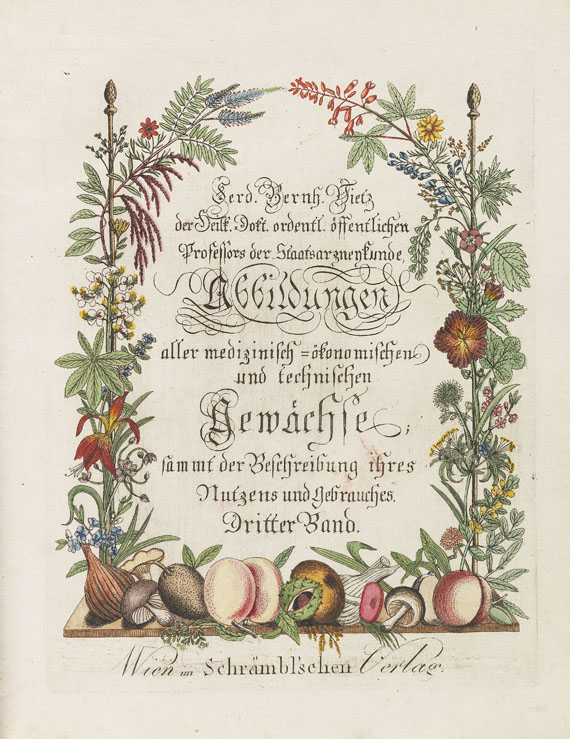 Ferd. Bernh. Vietz
der Heilk. Dokt. ordentl. öffentlichen
Professors der Staatsarzneykunde,
Abbildungen
aller medizinisch=ökonomischen
und technischen
Gewächse,
sammt der Beschreibung ihres
Nutzens und Gebrauches.
Dritter Band.
Wien im Schrämbl'schen Verlag.